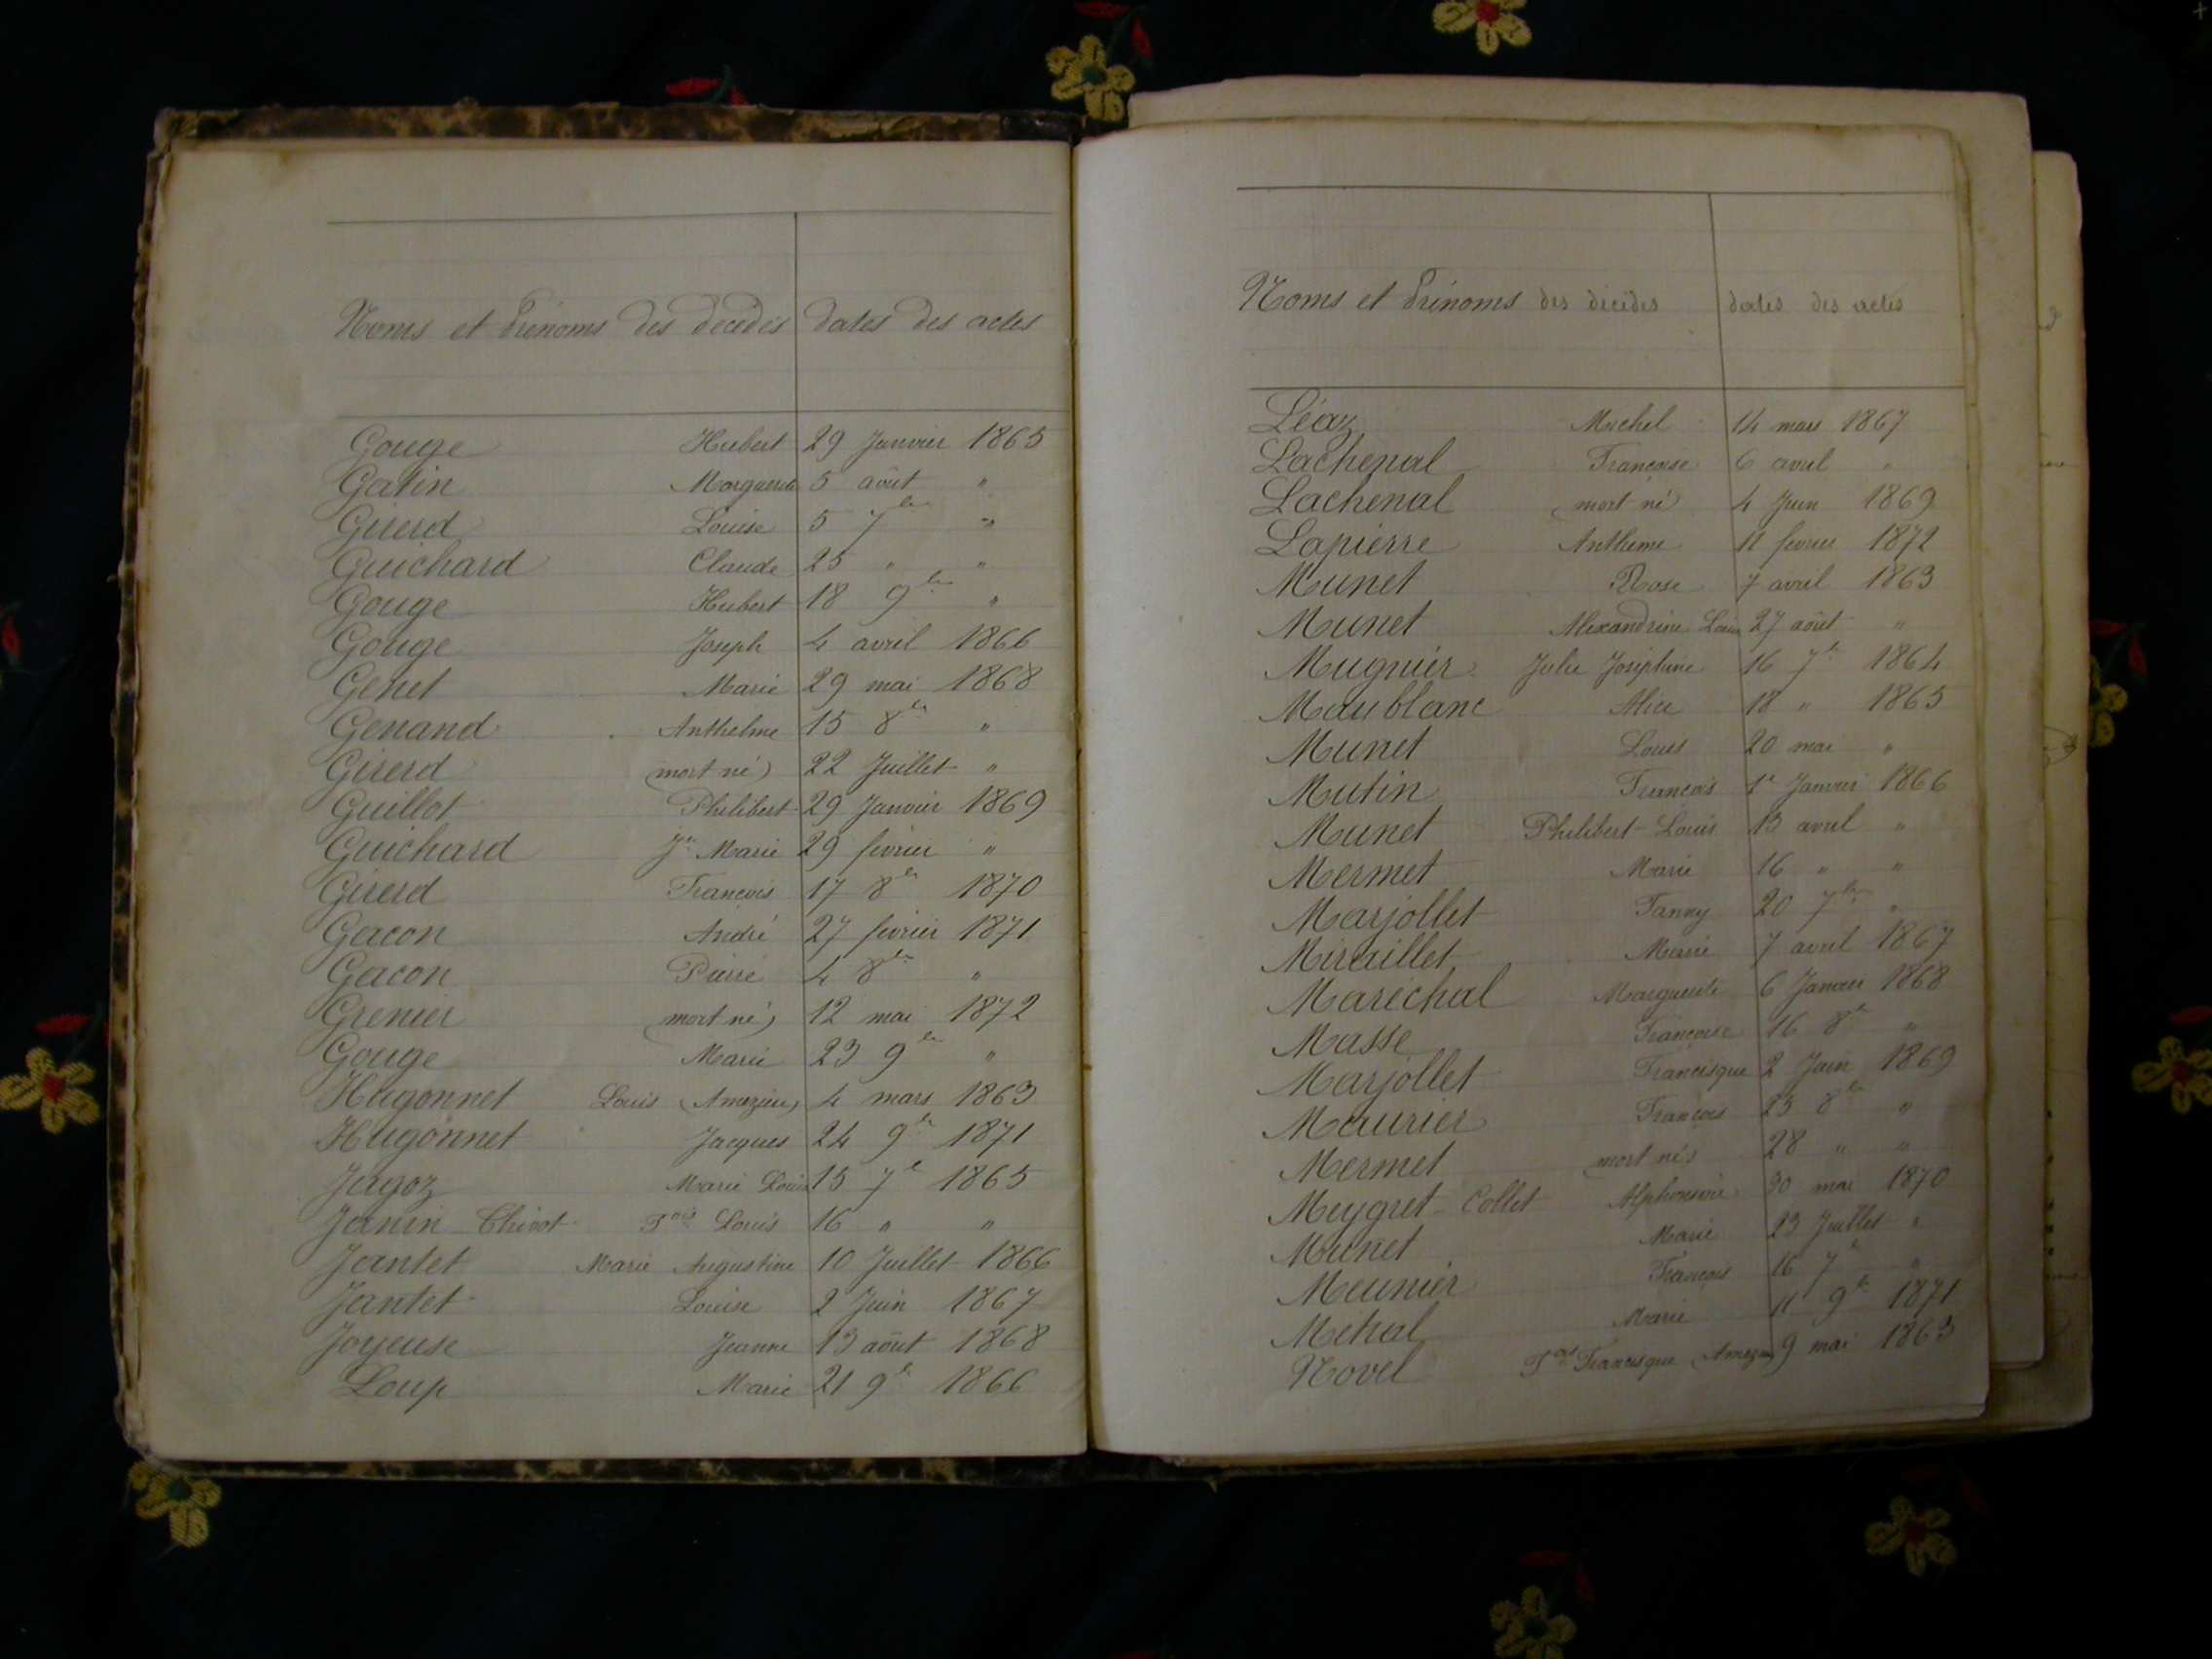 Noms et Prénoms des décédés dates des actes
Gouge Hubert 29 Janvier 1865
Gatin Marguerite 5 août "
Girerd Louise 5 7bre "
Guichard Claude 25 " "
Gouge Hubert 18 9bre "
Gouge Joseph 4 avril 1866
Genet Marie 29 mai 1868
Genand Anthelme 15 8bre "
Girerd (mort né) 22 Juillet "
Guillot Philibert 29 Janvier 1869
Guichard Jne Marie 29 février "
Girerd François 17 8bre 1870
Gacon André 27 février 1871
Gacon Pierre 4 8bre "
Grenier (mort né) 12 mai 1872
Gouge Marie 23 9bre "
Hugonnet Louis (Amezieu) 4 mars 1863
Hugonnet Jacques 24 9bre 1871
Jagoz Marie Louise 15 7bre 1865
Janin Chivot Fois Louis 16 " "
Jantet Marie Augustine 10 Juillet 1866
Jantet Louise 2 Juin 1867
Joyeuse Jeanne 13 août 1868
Loup Marie 21 9bre 1866
Noms et Prénoms des décédés dates des actes
Léaz Michel 14 mars 1867
Lachenal Françoise 6 avril "
Lachenal (mort né) 4 Juin 1869
Lapierre Antheme 11 février 1872
Munet Rose 7 avril 1863
Munet Alexandrine Louise 27 août "
Mugnier Julie Joséphine 16 7bre 1864
Maublanc Alice 18 " 1865
Munet Louis 20 mai "
Mutin François 1er Janvier 1866
Munet Philibert-Louis 13 avril "
Mermet Marie 16 " "
Marjollet Fanny 20 7bre "
Miraillet Marie 7 avril 1867
Maréchal Marguerite 6 Janvier 1868
Masse Françoise 16 8bre "
Marjollet Francisque 2 Juin 1869
Maurier François 23 8bre "
Mermet (mort né) 28 " "
Meygret-Collet Alphonsine 30 mai 1870
Munet Marie 23 Juillet "
Meunier François 16 7bre "
Méhal Marie 11 9bre 1871
Novel Fois Francisque (Amezieu) 9 mai 1863